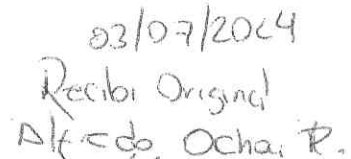 03/07/2024
Recibi Original
Alfredo Ochoa R.